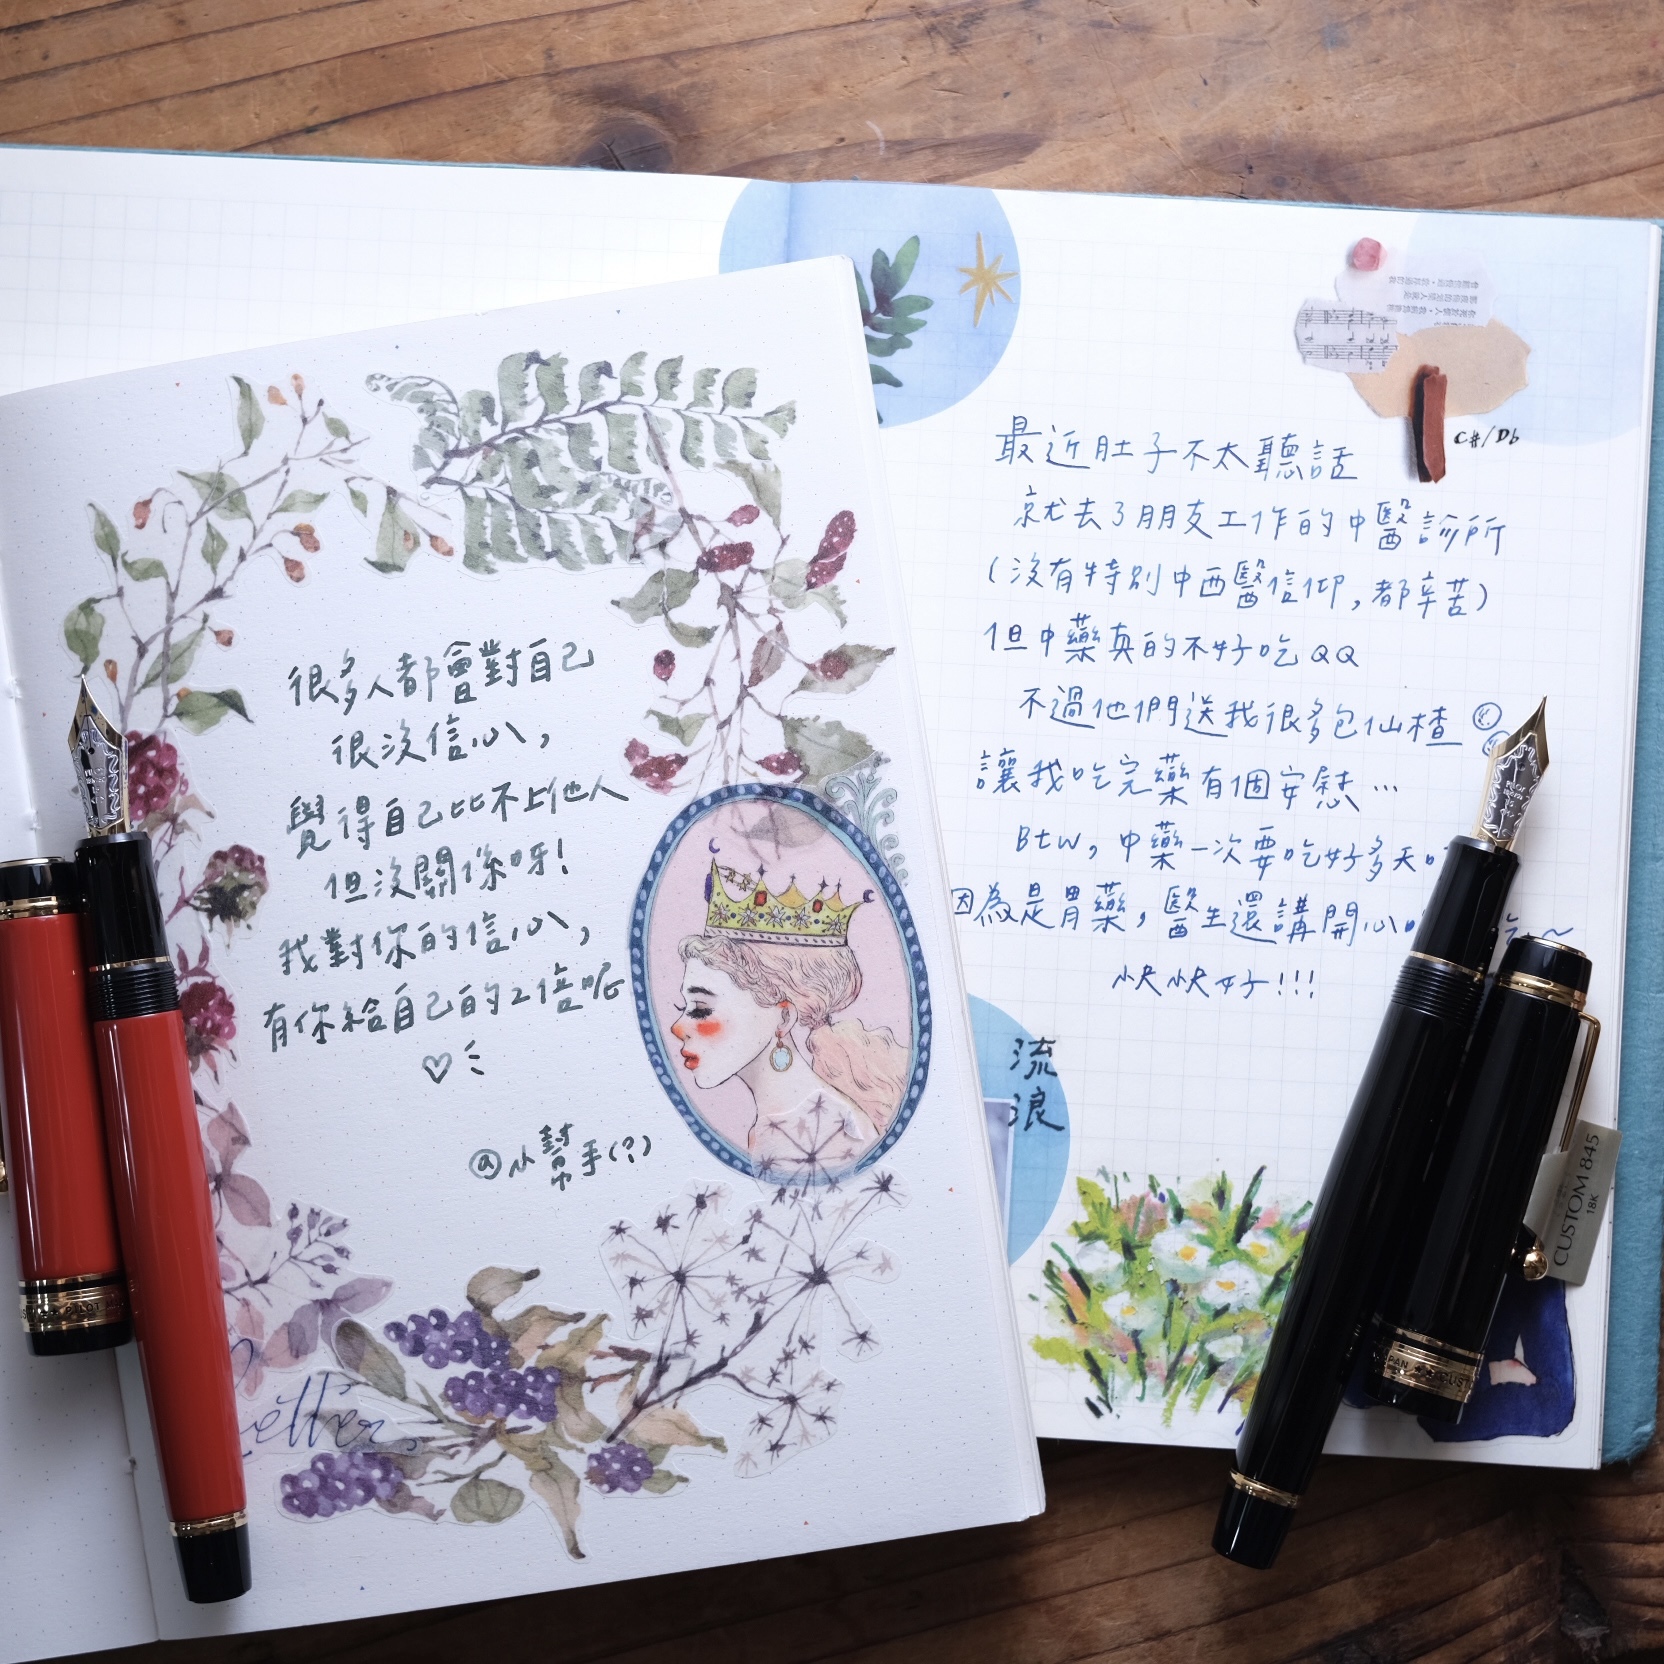 很多人都會對自己
很沒信心，
覺得自己比不上他人
但沒關係呀！
我對你的信心，
有你給自己的2倍呢
@小幫手(?)
Letter
C#/Db
最近肚子不太聽話
就去了朋友工作的中醫診所
(沒有特別中西醫信仰，都辛苦)
但中藥真的不好吃QQ
不過他們送我很多包仙楂
讓我吃完藥有個安慰…
Btw，中藥一次要吃好多天
因為是胃藥，醫生還講開心
快快好!!!
流
浪
CUSTOM 845
18K
PILOT